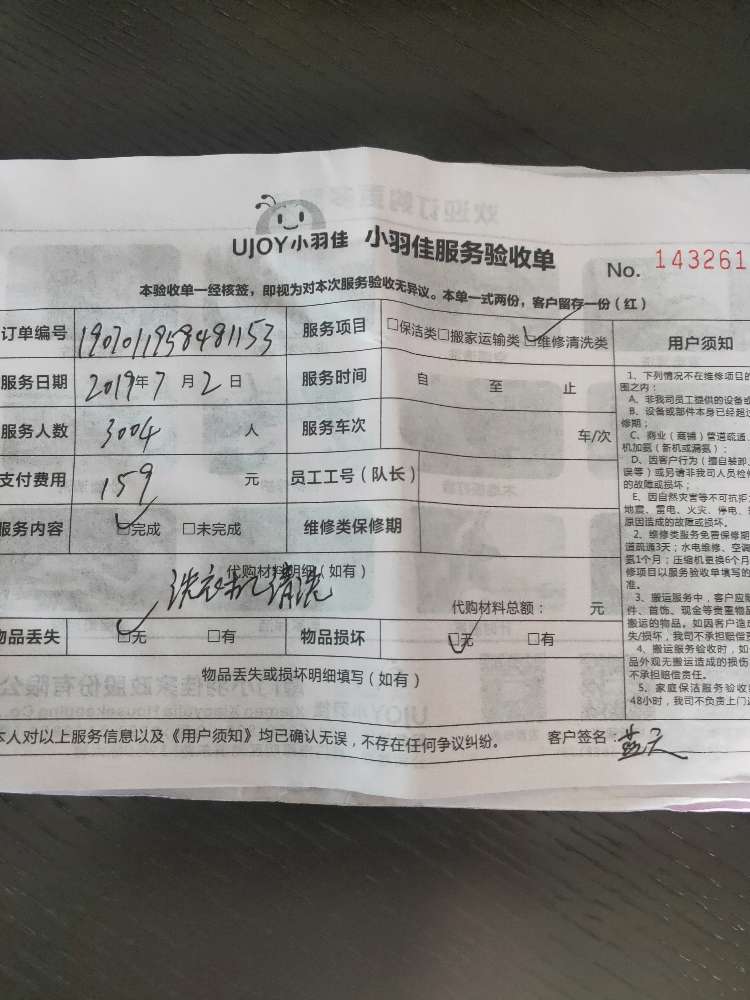 UJOY小羽佳 小羽佳服务验收单
No. 143261
本验收单一经核签，即视为对本次服务验收无异议。本单一式两份，客户留存一份（红）
订单编号 1907011958481153 服务项目 □保洁类□搬家运输类□维修清洗类 用户须知
服务日期 2019年7月2日 服务时间 自 至 止
服务人数 3004 人 服务车次 车/次
支付费用 159 元 员工工号（队长）
服务内容 □完成 □未完成 维修类保修期
代购材料明细（如有）
洗衣机清洗
代购材料总额： 元
物品丢失 □无 □有 物品损坏 □无 □有
物品丢失或损坏明细填写（如有）
本人对以上服务信息以及《用户须知》均已确认无误，不存在任何争议纠纷。 客户签名：蓝天
1、下列情况不在维修项目的
围之内：
A、非我司员工提供的设备或
B、设备或部件本身已经超过
修期；
C、商业（商铺）管道疏通、
机加氨（新机或漏氨）；
D、因客户行为（擅自装卸、
误等）或另请非我司人员检修
的故障或损坏；
E、因自然灾害等不可抗拒
地震、雷电、火灾、停电、
原因造成的故障或损坏。
2、维修类服务免费保修期
道疏通3天；水电维修、空调
氨1个月；压缩机更换6个月
修项目以服务验收单填写的
准。
3、搬运服务中，客户应
件、首饰、现金等贵重物品
搬运的物品。如因客户造成
失/损坏，我司不承担赔偿责
4、搬运服务验收时，如
品外观无搬运造成的损伤
不承担赔偿责任。
5、家庭保洁服务验收
48小时，我司不负责上门